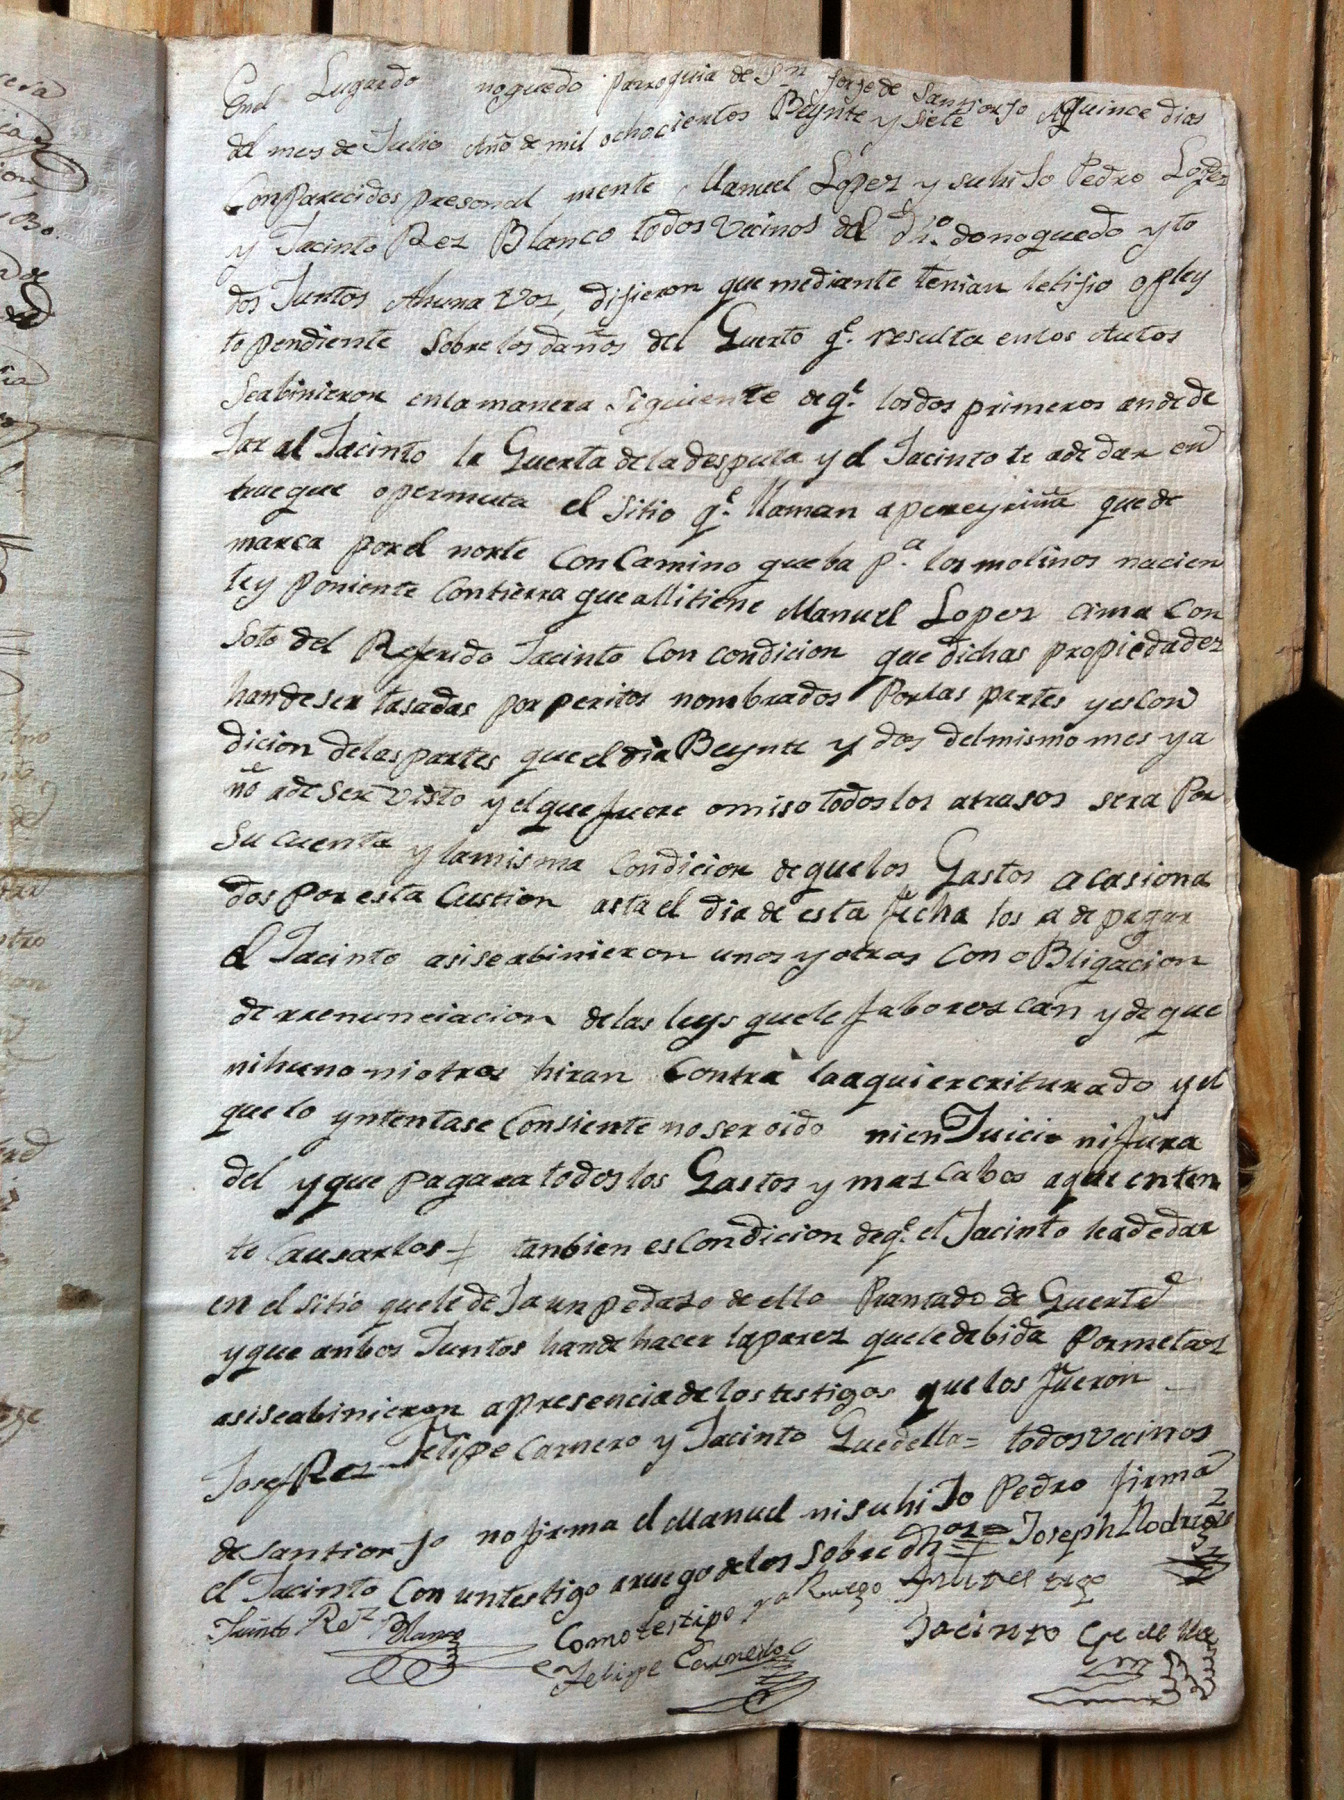 Enel Lugardo noguedo parroquia de Sn Jorge de Santiorjo Aquince dias
del mes de Julio Año de mil ochocientos Beynte y siete
Comparecidos presonal mente Manuel Lopez y su hiJo Pedro Lopez
y Jacinto Rez Blanco todos vecinos del dho. donoguedo y to
dos Juntos Ahuna Voz, dijieron que mediante tenian letijio o pley
to pendiente Sobrelosdaños del Guerto qe. resulta enlos Autos
Seabinieron enlamanera Siguiente deqe. losdos primeros ande de
Jar al Jacinto la Guerta deladesputa y el Jacinto le adedar en
trueque opermuta el sitio qe. llaman apereyriña que de
marca porel norte Con Camino queba pa. los molinos nacien
te y poniente Contierra que allitiene Manuel Lopez cima Con
Soto del Referido Jacinto Con condicion que dichas propiedadez
handeser tasadas por peritos nombrados Porlas partes yesCon
dicion delaspartes queeldia Beynte y dos delmismo mes ya
ño adeser visto yelque fuere omiso todoslos atrasos sera Por
Su cuenta y lamisma Condicion dequelos Gastos acasiona
dos por esta Custion asta el dia de esta fecha los a de pagar
el Jacinto asiseabinieron unos yotros Con oBligacion
derrenunciacion delas leys quele faborezcan y de que
nihuno niotros hiran Contra loaquiercriturado yel
quelo yntentase Consiente noser oido nien Juicio nifura
del yque pagara todoslos Gastos y mazcabos aquienten
te Causarlos tanbien esCondicion deqe. el Jacinto leadedar
en el sitio quelede Ja unpedazo de ello Prantado de Guerta
yque anbos Juntos hande hacer laparez queledebida Pormetaz
asiseabinieron apresenciadelostestigos quelos fueron
Josef Rez Felipe Carnero y Jacinto Guedella = todos vecinos
deSantiorJo nofirma el Manuel nisuhiJo Pedro firma
el Jacinto Con untestigo aruego delos Sobredhos = Joseph Rodriguez
Jacinto Rez Blanco Comotestigo ya Ruego
Felipe Carnero Jacinto Gedella